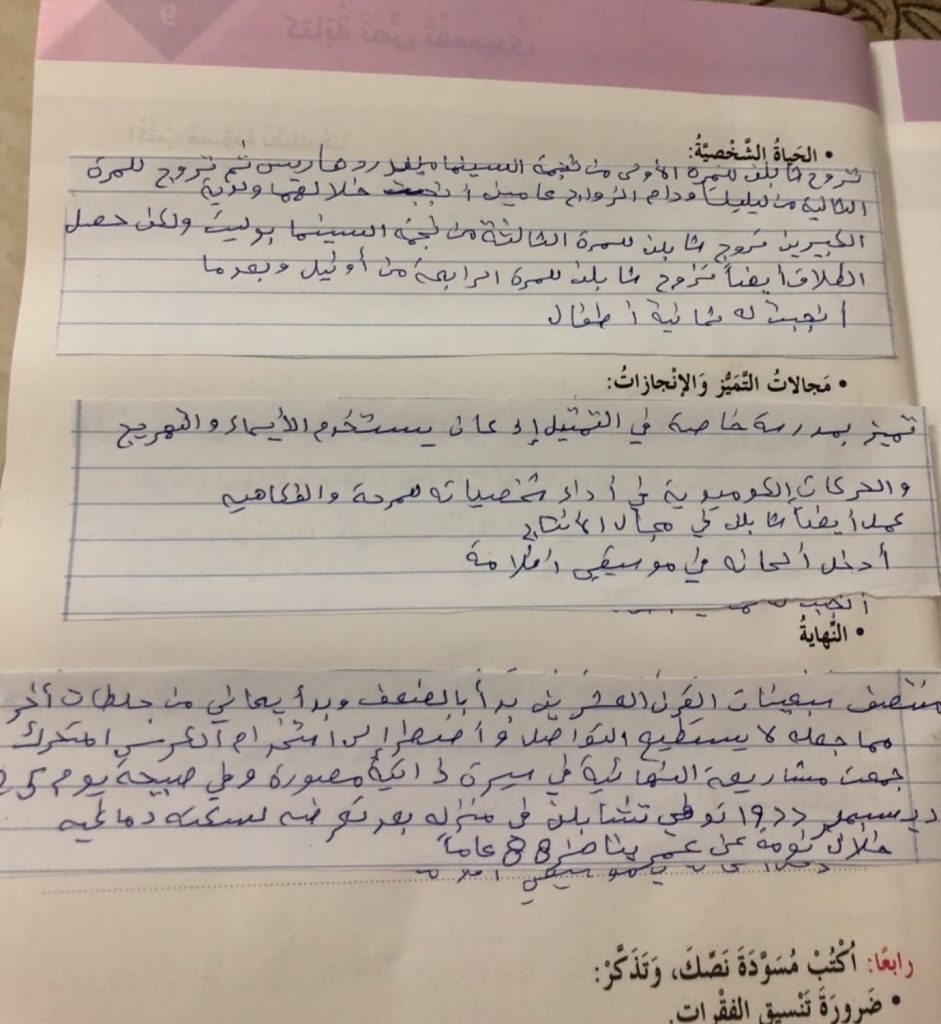 • الحَياةُ الشَّخْصيَّةُ:
تزوج شابلن للمرة الأولى من نجمة السينما ميلدرد هاريس ثم تزوج للمرة
الثانية من ليليتا ودام الزواج عامين أنجبت خلالهما ولدية
الكبيرين تزوج شابلن للمرة الثالثة من نجمة السينما بوليت ولكن حصل
الطلاق أيضاً تزوج شابلن للمرة الرابعة من أونيل وبعدما
أنجبت له ثمانية أطفال
• مَجالاتُ التَّمَيُّزِ وَالإنْجازاتُ:
تميز بمدرسة خاصة في التمثيل إذ كان يستخدم الأيماء والتهريج
والحركات الكوميدية في أداء شخصياته المرحة والفكاهيه
عمل أيضاً شابلن في مجال الانتاج
أدخل ألحانه في موسيقى افلامة
• النِّهايةُ
منتصف سبعينات القرن العشرين بدأ بالضعف وبدأ يعاني من جلطات أخر
مما جعله لا يستطيع التواصل وأضطر إلى استخدام الكرسي المتحرك
جمعت مشاريعة النهائية في سيرة ذاتية مصورة وفي صبيحة يوم 25
ديسمبر 1977 توفي تشابلن في منزله بعد تعرضه لسكته دماغيه
خلال نومة عن عمر يناهز 88 عاماً
رابعًا: اُكْتُبْ مُسْوَّدَةَ نَصِّكَ، وَتَذَكَّرْ:
• ضَرورَةَ تَنْسيقِ الفِقْراتِ.